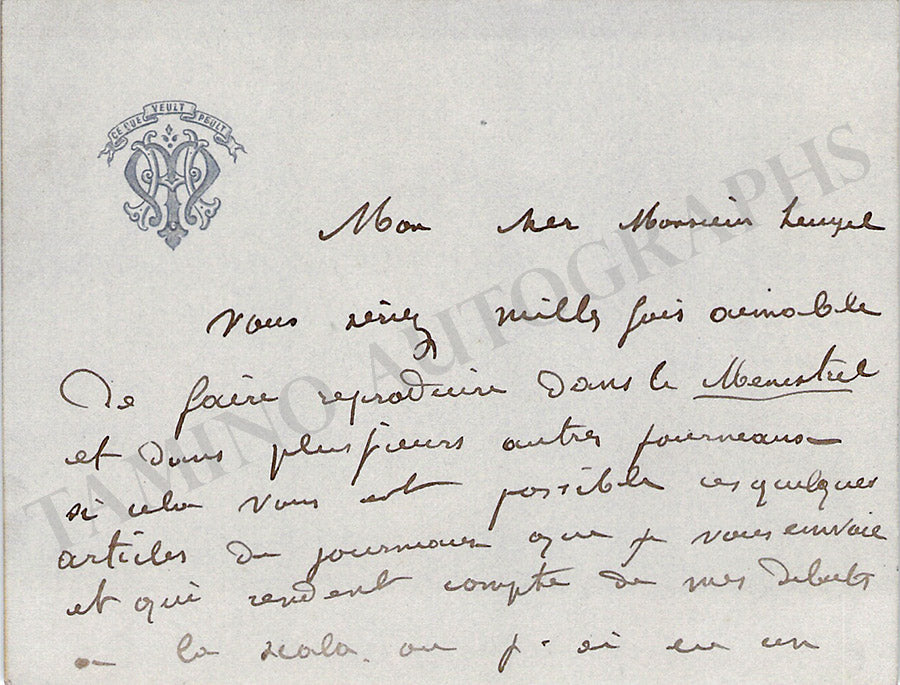 CE QUE VEULT PEULT
Mon cher Monsieur Heugel
vous seriez milles fois aimable
De faire reproduire dans le Menestrel
et dans plusieurs autres journeaux
si cela vous est possible ces quelques
articles de journeaux que je vous envoie
et qui rendent compte de mes debuts
a la scala. ou j'ai eu un
TAMINO AUTOGRAPHS